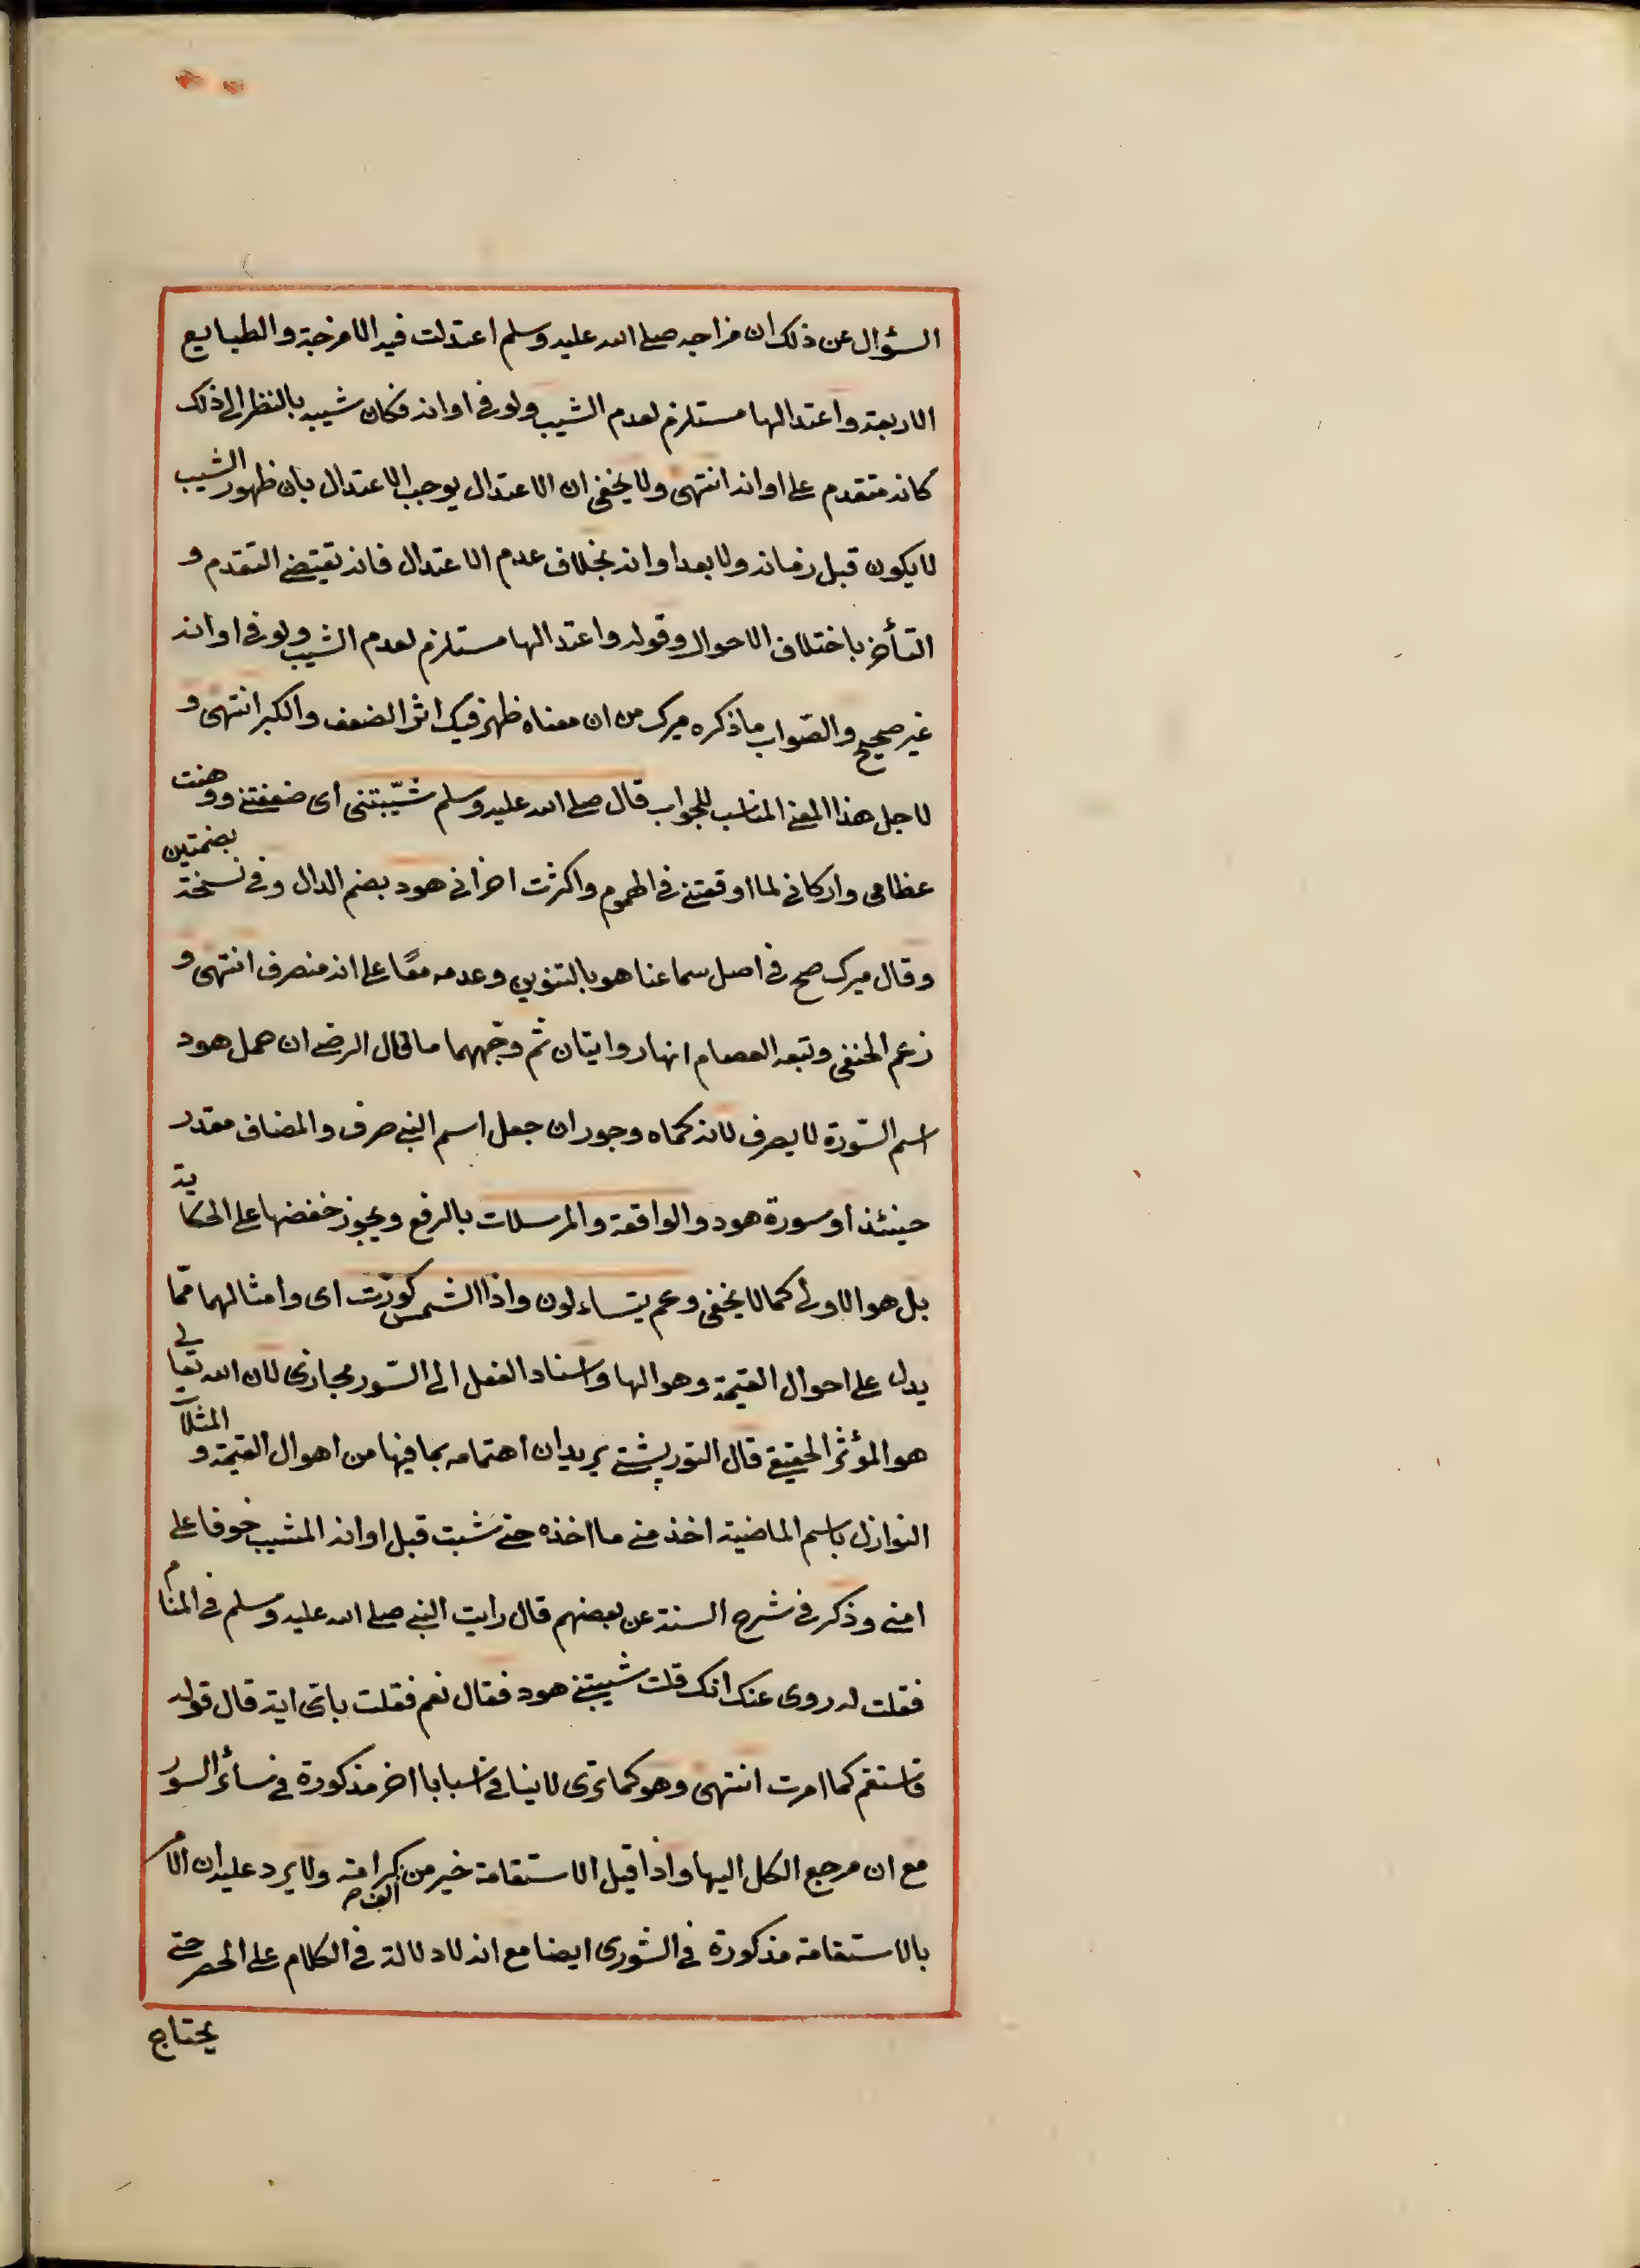 السؤال عن ذلك ان مزاجه صلى الله عليه وسلم اعتدلت فيه الامزجة والطبايع
الاربعة واعتدالها مستلزم لعدم الشيب ولو فى اوانه فكان شيبه بالنظر الى ذلك
كانه متقدم على اوانه انتهى ولا يخفى ان الاعتدال يوجب الاعتدال بان ظهور الشيب
لا يكون قبل زمانه ولا بعد اوانه بخلاف عدم الاعتدال فانه تقيتضى التقدم و
التأخر باختلاف الاحوال وقوله واعتدالها مستلزم لعدم الشيب ولو فى اوانه
غير صحيح والصّواب ما ذكره ميرك من ان معناه ظهر فيك اثر الضعف والكبر انتهى و
لاجل هذا المعنى المناسب للجواب قال صلى الله عليه وسلم شيّبتنى اى ضعفتنى ووهنت
عظامى واركانى لما اوقعتنى فى الهموم واكثرت احزانى هود بضم الدال وفى نسخة بضمتين
وقال ميرك صح فى اصل سماعنا هو بالتنوين وعدمه معًا على انه منصرف انتهى و
زعم الحنفى وتبعه العصام انها روايتان ثم وجّههما ما قال الرضى ان جعل هود
اسم السّورة لا يصرف لانه كماه وجور ان جعل اسم النبى صرف والمضاف مقدر
حينئذ او سورة هود والواقعة والمرسلات بالرفع ويجوز خفضها على الحكاية
بل هو الاولى كما لا يخفى وعم يتساءلون واذا الشمس كورت اى وامثالهما ممّا
يدل على احوال القيمة وهوالها واسناد الفعل الى السّور مجازى لان الله تعالى
هو المؤثر الحقيقى قال التورپشتى يريد ان اهتمامه بما فيها من اهوال القيمة و المثلات
النوازل باسم الماضية اخذ منى ما اخذه حتى شبت قبل اوانه المشيب خوفا على
امتى وذكر فى شرح السنة عن بعضهم قال رايت النبى صلى الله عليه وسلم فى المنام
فقلت له روى عنك انك قلت شيبتنى هود فقال نعم فقلت باى اية قال قوله
فاستقم كما امرت انتهى وهو كما ترى لا ينافى اسبابا اخر مذكورة فى سائر السور
مع ان مرجع الكل اليها واذا قيل الاستقامة خير من الف كرامة ولا يرد عليه ان الامر
بالاستقامة مذكورة فى الشورى ايضا مع انه لا دلالة فى الكلام على الحصر حتى
يحتاج